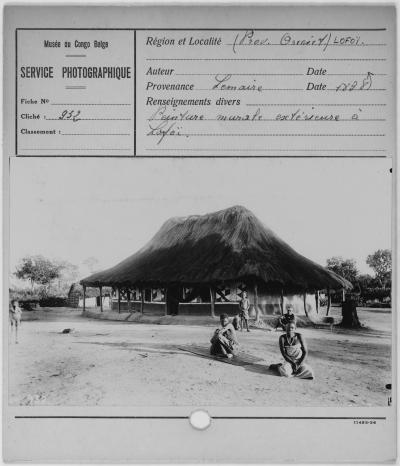 Musée du Congo Belge
SERVICE PHOTOGRAPHIQUE
Fiche No
Cliché : 952
Classement :
Région et Localité (Prov. Orient) LOFOÏ.
Auteur Date
Provenance Lemaire Date 1898
Renseignements divers
Peinture murale extérieure à
Lofoï.